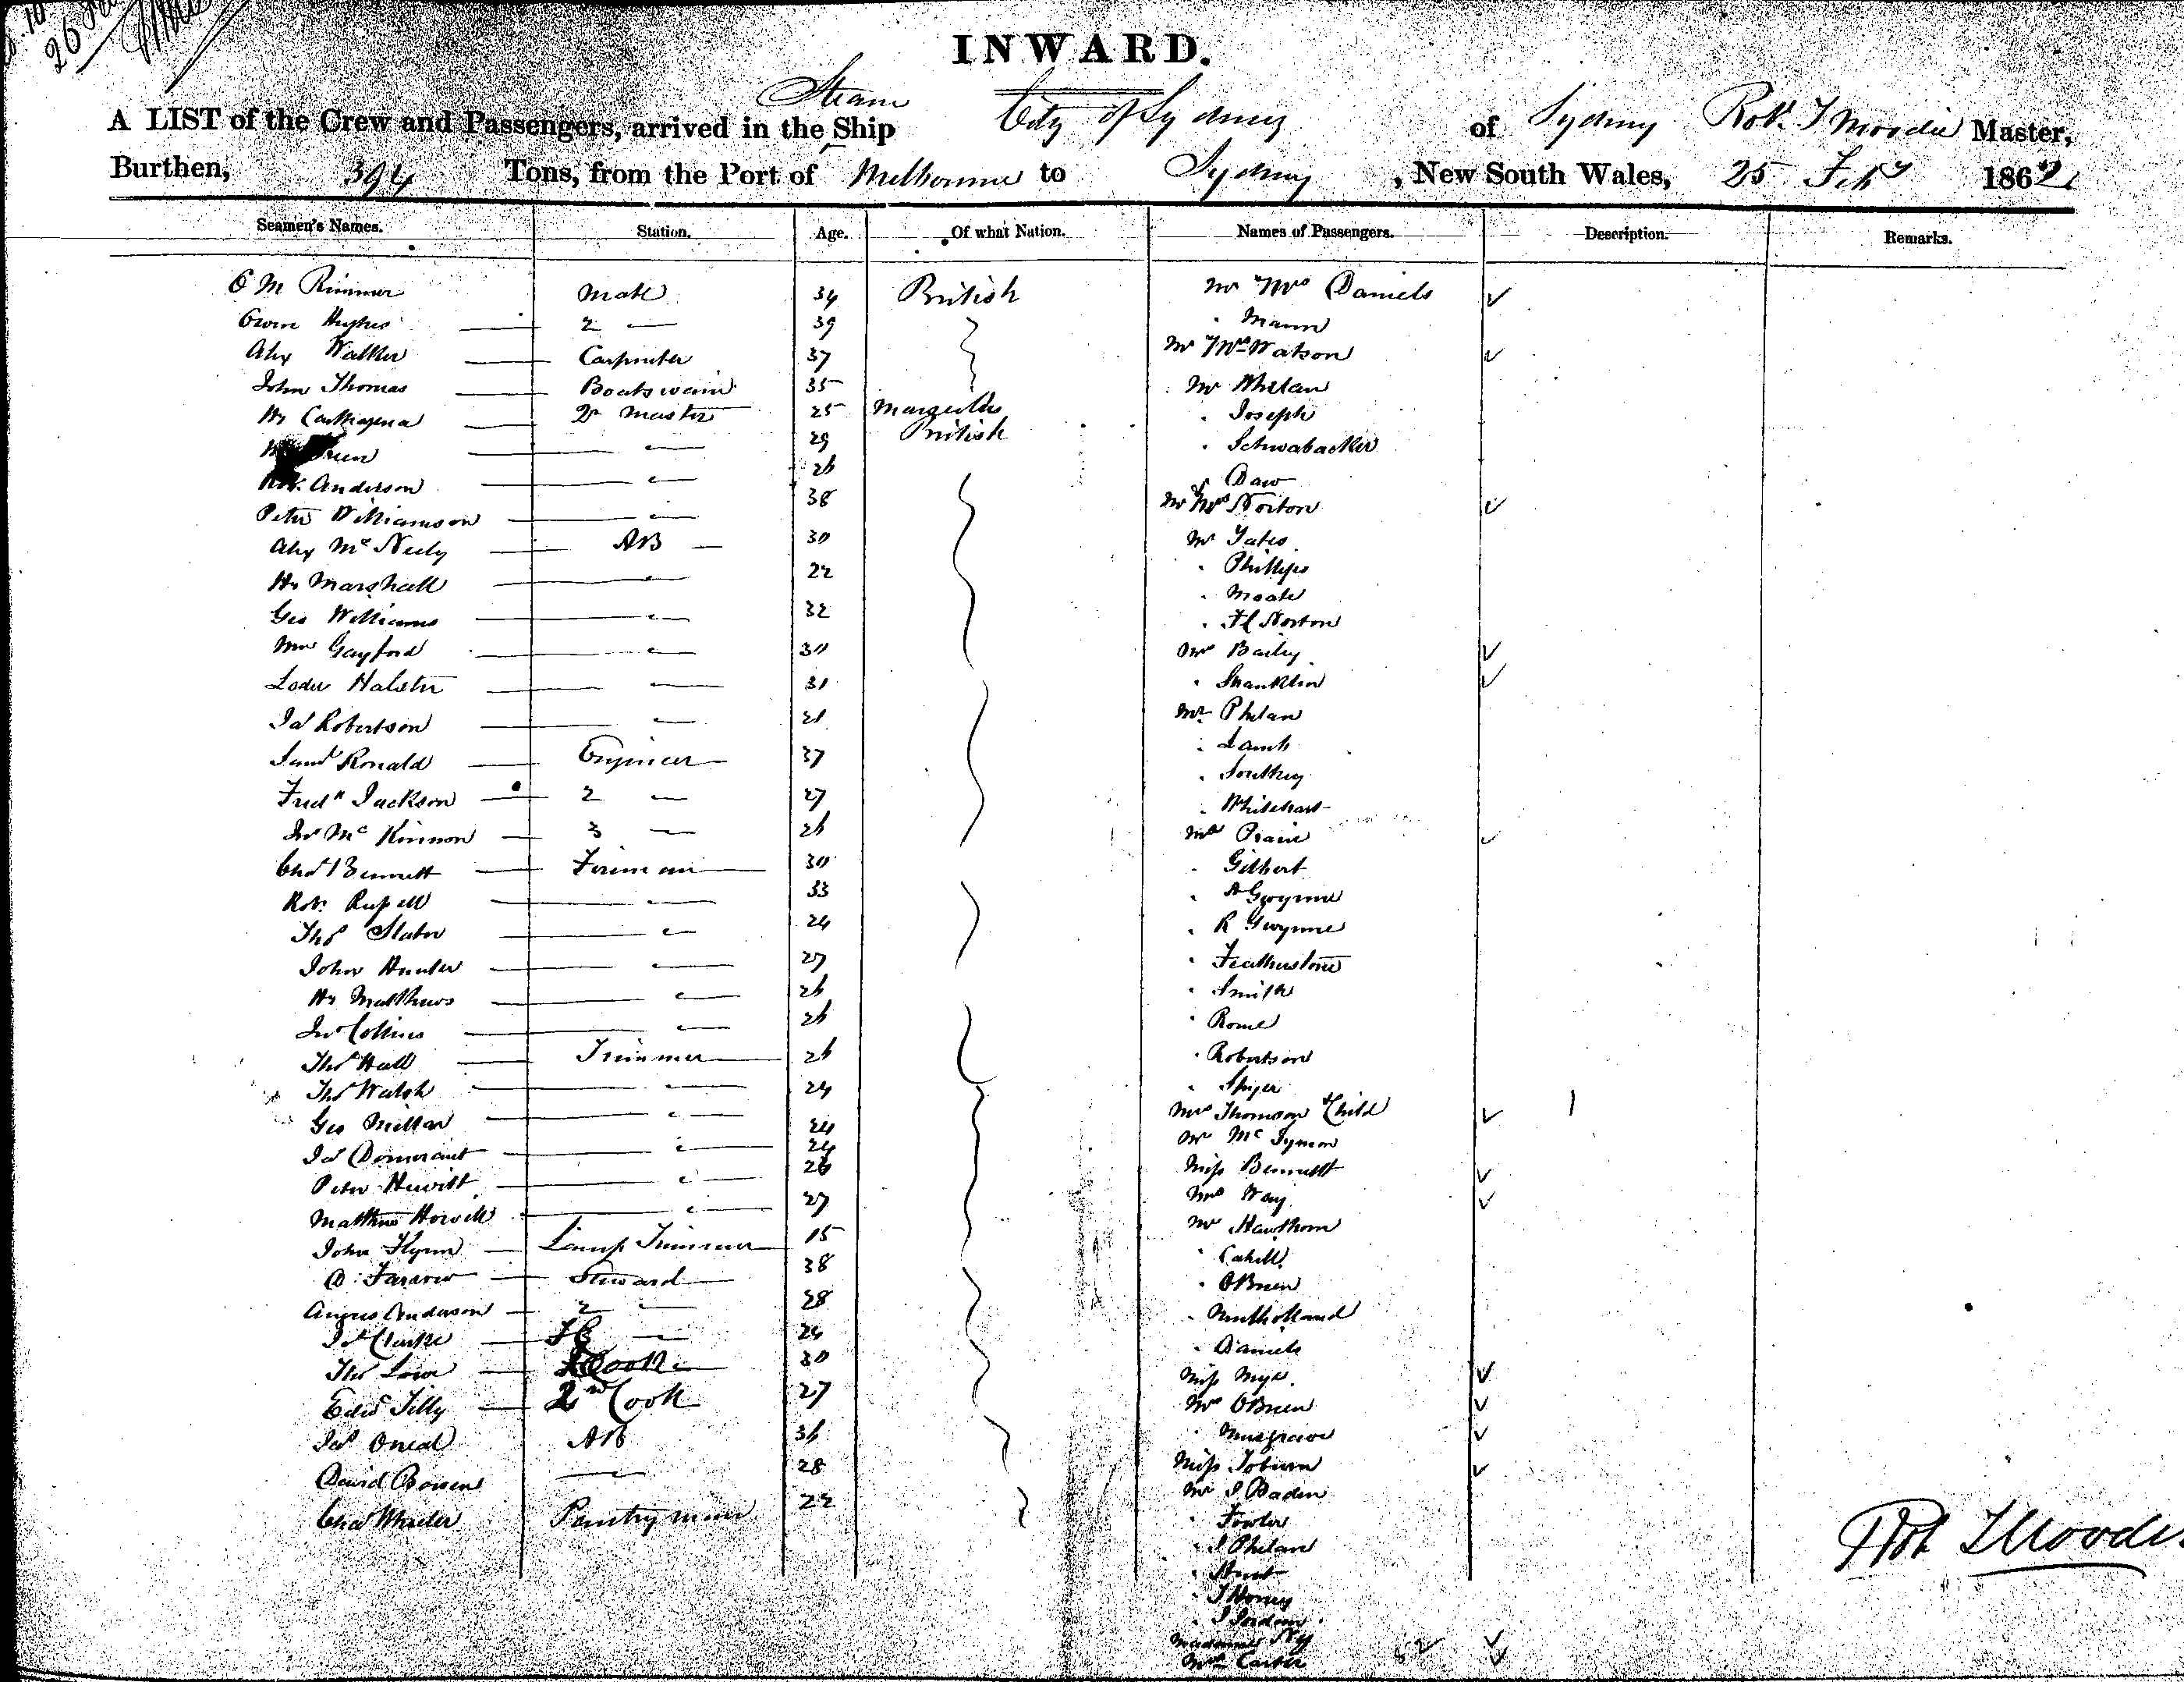 26 Feb
INWARD.
A LIST of the Crew and Passengers, arrived in the Steam Ship City of Sydney of Sydney Robt. T Moodie Master,
Burthen, 394 Tons, from the Port of Melbourne to Sydney, New South Wales, 25 Feby 1862
Seamen's Names. Station. Age. Of what Nation. Names of Passengers. Description. Remarks.
C M Rimmer Mate 34 British Mr Mrs Daniels ✓
Owen Hughes 2 — 39 " Mann
Alex Walker Carpenter 37 Mr Mrs Watson ✓
John Thomas Boatswain 35 Mr Whelan
Hy Carthagena Qr Master 25 Marseilles " Joseph
Green " 29 British " Schwabacker
Robt. Anderson " 26 " Daw
Peter Williamson " 38 Mr Mrs Norton ✓
Alex McNeely AB 30 Mr Yates
Hy Marshall " 22 " Phillips
Geo Williams " 32 " Moate
Wm Gayford " 30 " Fl Norton
Loder Halster " 31 Mrs Baily ✓
Jas Robertson " 21 " Shanklin ✓
Saml Ronald Engineer 37 Mr Phelan
Fredk Jackson 2 — 27 " Lamb
Jno McKinnon 3 — 26 " Southey
Chas Bennett Fireman 30 " Whitehart
Robt. Russell " 33 Mrs Prain ✓
Thos Slater " 24 " Gilbert
John Hunter " 27 " A Gwynne
Hy Matthews " 26 " R Gwynne
Jno Collins " 26 " Featherstone
Thos Hall Trimmer 26 " Smith
Thos Walsh " 24 " Rome
Geo Millar " 24 " Robertson
Jas " 24 " Spyer
Peter Hewitt " 26 Mrs Thomson & Child ✓ 1
Matthew Howell " 27 Mr McSymon
John Flynn Lamp Trimmer 15 Miss Bennett ✓
D. Farrow Steward 38 Mrs Way ✓
Angus Anderson 2 — 28 Mr Hawthorn
Jas Clarke 24 " Cahill
Thos Lowe Cook 30 " OBrien
Edwd Tilly 2nd Cook 27 " Mulholland
Jas Oneal AB 36 " Daniels
David Bowen " 28 Miss Mya ✓
Chas Wheeler Pantryman 22 Mrs OBrien ✓
" Musgrave ✓
Miss Toburn ✓
Mr J. Baden
" Fowler
" J Phelan
" Hunt
" T Honey
" J Jordan
Madame Ny ✓
Mrs Carter 52 ✓
Robt T Moodie